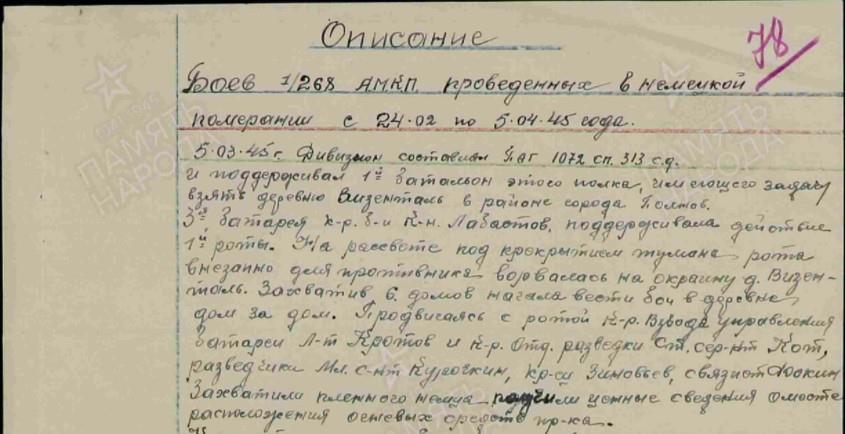 Описание
78
Боев 1/268 АМКП проведенных в немецкой
померании с 24.02 по 5.04.45 года.
5.03.45 г. Дивизион составил ПАГ 1072 сп. 313 с.д.
и поддерживал 1й батальон этого полка, имеющего задачу
взять деревню Визенталь в районе города Болтов.
3я батарея к-р. б-и К-н. Лабастов, поддерживала действие
1й роты. На рассвете под прокрытием тумана рота
внезапно для противника ворвалась на окраину д. Визен-
таль. Захватив 6 домов начала вести бой в деревне
дом за дом. Продвигаясь с ротой к-р. Взвода управления
батареи Л-т Кротов и к-р. Отд. разведки Ст. сер-нт Кот,
разведчики Мл. с-нт Курочкин, кр-си Зиновьев, связист
Захватили пленного немца получили ценные сведения о месте
расположения огневых средств пр-ка.
ПАМЯТЬ
НАРОДА